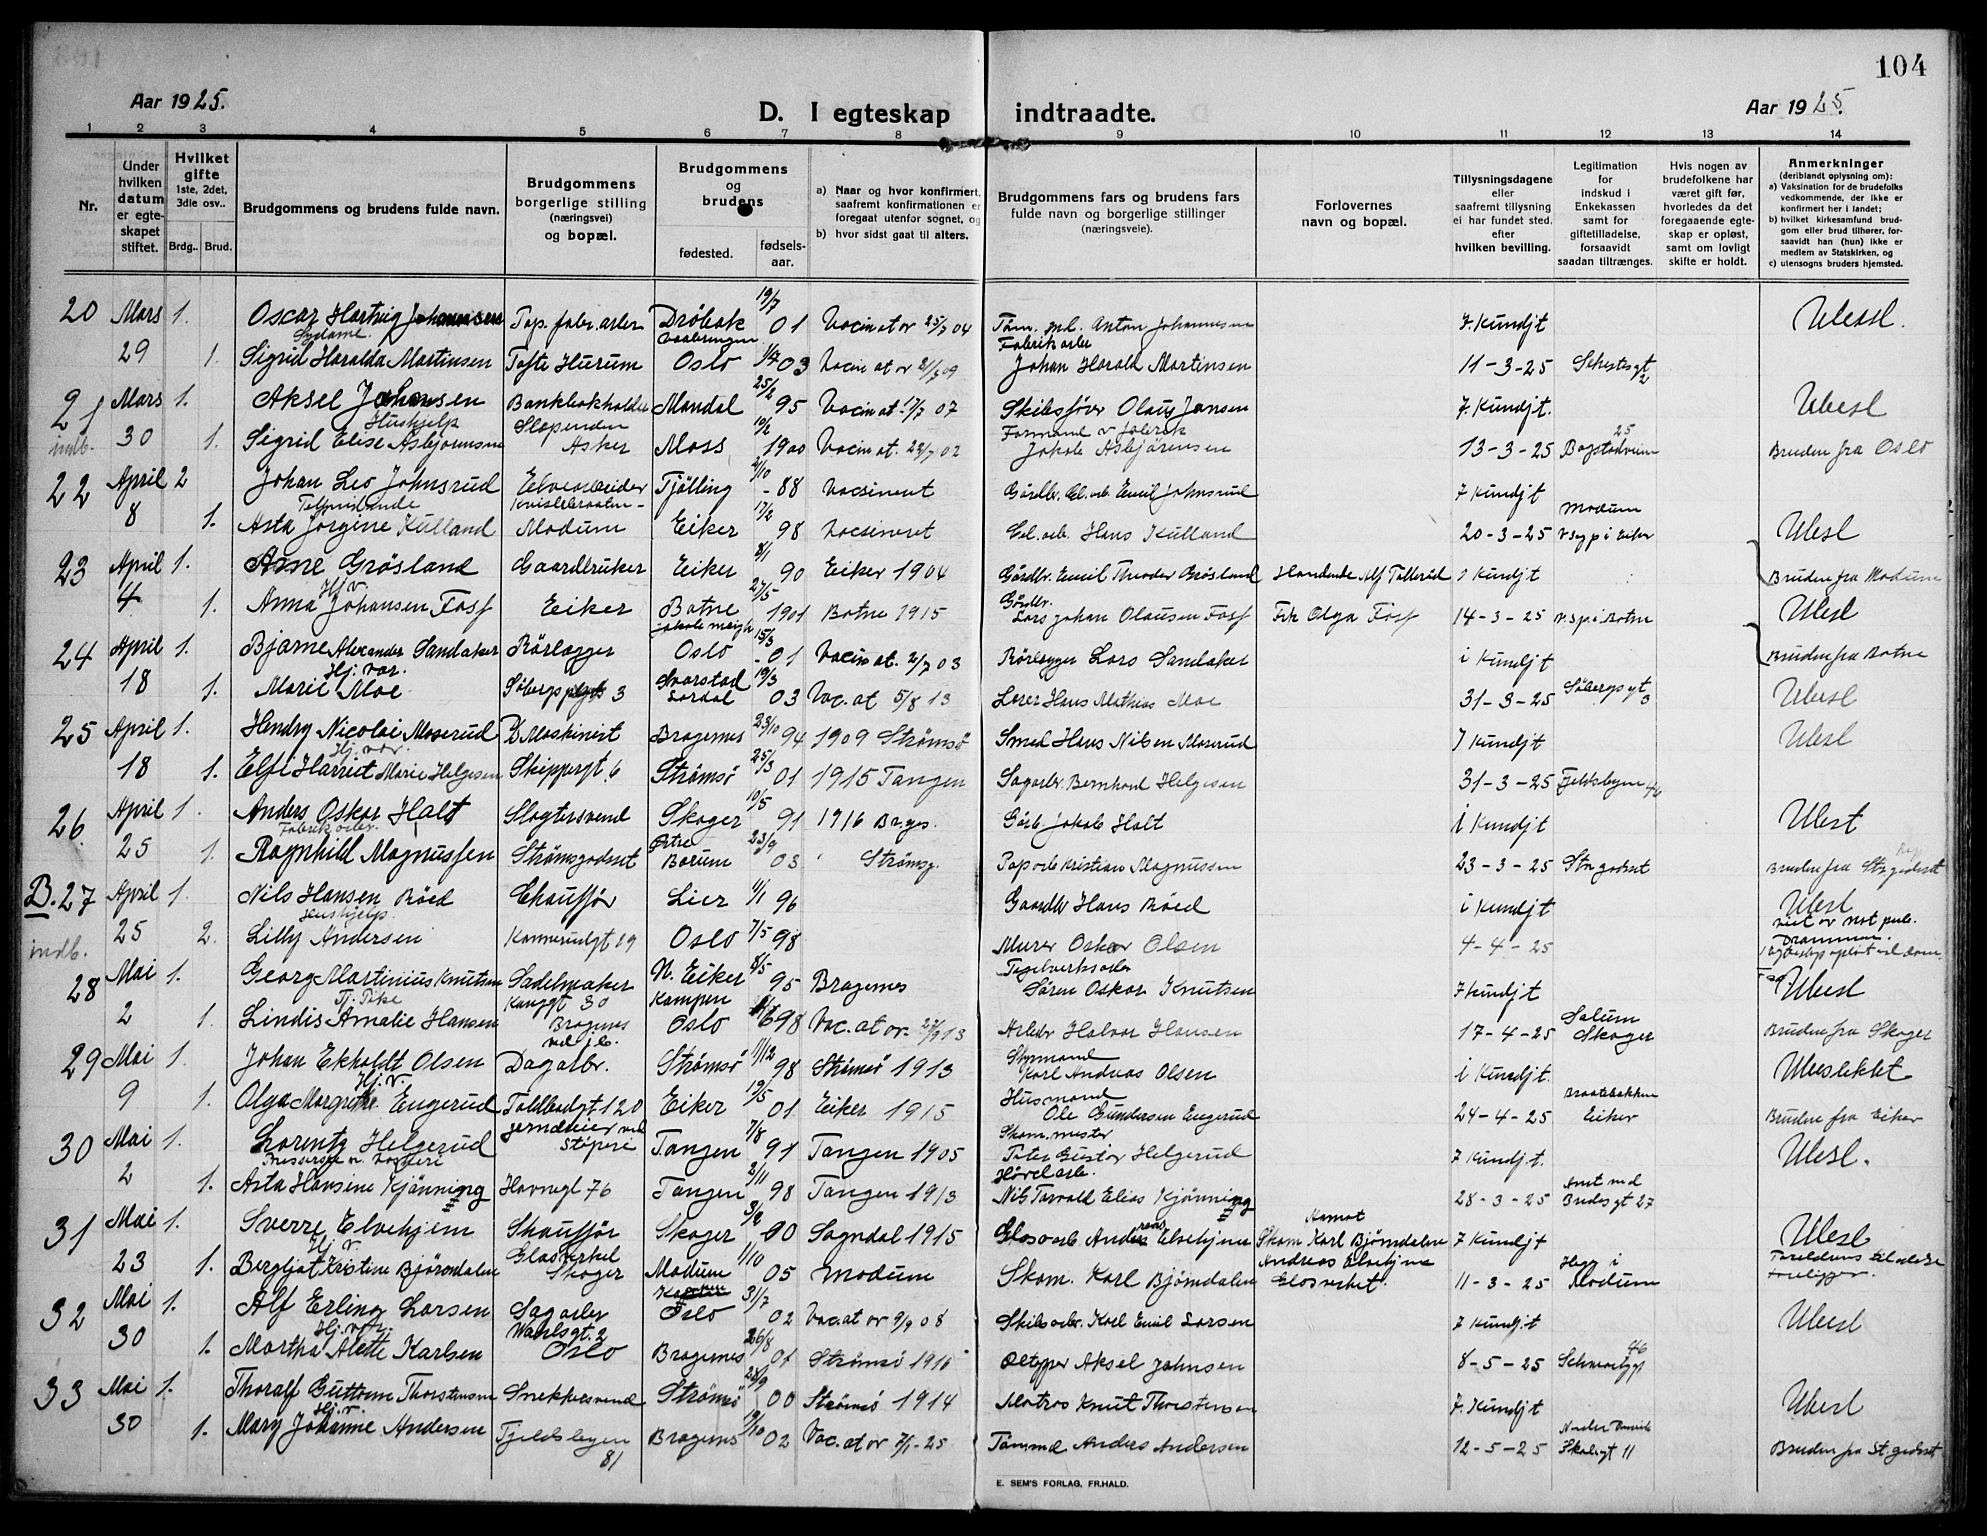 104
Aar 1925.
D. I egteskap indtraadte.
Aar 1925.
1 2 3 4 5 6 7 8 9 10 11 12 13 14
Nr.
Under hvilken datum er egteskapet stiftet.
Hvilket gifte 1ste, 2det, 3die osv..
Brdg. Brud.
Brudgommens og brudens fulde navn.
Brudgommens borgerlige stilling (næringsvei) og bopæl.
Brudgommens og brudens
fødested. fødselsaar.
a) Naar og hvor konfirmert, saafremt konfirmationen er foregaat utenfor sognet, og
b) hvor sidst gaat til alters.
Brudgommens fars og brudens fars fulde navn og borgerlige stillinger (næringsveie).
Forlovernes navn og bopæl.
Tillysningsdagene eller saafremt tillysning ei har fundet sted, efter hvilken bevilling.
Legitimation for indskud i Enkekassen samt for giftetilladelse, forsaavidt saadan tiltrænges.
Hvis nogen av brudefolkene har været gift før, hvorledes da det foregaaende egteskap er opløst, samt om lovligt skifte er holdt.
Anmerkninger (deriblandt oplysning om):
a) Vaksination for de brudefolks vedkommende, der ikke er konfirmert her i landet;
b) hvilket kirkesamfund brudgom eller brud tilhører, forsaavidt han (hun) ikke er medlem av Statskirken, og
c) utensogns bruders hjemsted.
20 Mars 1. Oscar Hartvig Johannesen Pap. fabr. arber Drøbak 19/7 01 Vacin at or 25/7 04 Anton Johannesen 7. Kundjt Ubesl.
Sydame Vaaleringen Fabrik arb
29 1. Sigrid Haralda Martinsen Tofte Hurum Oslo 03 Johan Harald Martinsen 11-3-25
21 Mars 1. Aksel Johansen Bankbokholder Mandal 25/2 95 Vacin at. 17/7 07 Skibsfører Olaus Jansen 7. Kundjt. Ubesl
indb. Hushjelp Slependen Formand v fabrik 25
30 1. Sigrid Elise Asbjørnsen Asker Moss 1900 Vacin at. 22/7 02 Jakob Asbjørnsen 13-3-25 Bogstadveien Bruden fra Oslo
22 April 2 Johan Leo Johnsrud Elvearbeider Tjølling 2/10 -88 Vacsinert Gårdbr. El. arb. Emil Johnsrud 7 Kundjt
Modum
8 1. Asta Jørgine Kulland Modum Eiker 17/2 98 Vacsineret El. arb. Hans Kulland 20-3-25 Ubesl
23 April 1. Arne Grøsland Gaardbruker Eiker 8/1 90 Eiker 1904 Gårdbr. Emil Theodor Grøsland Handlende Alf Tollerud i Kundjt Bruden fra Modum
Hj. v. Gårdbr.
4 1. Anna Johansen Foss Eiker Botne 27/5 1901 Botne 1915 Lars Johan Olausen Foss Frk Olga Foss 14-3-25 v. sp. i Botne Ubesl
24 April 1. Bjarne Alexander Sandaker Rørlegger Oslo 15/3 -01 Vacin at. 2/7 03 Rørlegger Lars Sandaker i Kundjt Bruden fra Botne
Hj. var.
18 1. Marie Moe Søbergs 3 Svarstad Lardal 19/3 03 Vac. at 5/8 13 Lærer Hans Mathias Moe 31-3-25 Søbergs gt 3 Ubesl
25 April 1. Hendry Nicolai Moserud D Maskinist Bragernes 23/10 94 1909 Strømsø Smed Hans Nilsen Moserud 7 Kundjt Ubesl
Hj. var.
18 1. Elfi Harriet Marie Helgesen Skippergt. 6 Strømsø 25/3 01 1915 Tangen Sagarb. Bernhard Helgesen 31-3-25 46
26. April 1. Anders Oskar Halt Slagtersvend Skoger 10/5 91 1916 Brages. Gårb. Jakob Halt i Kundjt Ubesl
Fabrik arb.
25 1. Ragnhild Magnussen Strømsgodset Østre Bærum 23/9 03 Strømsg. Pap arb Kristian Magnussen 23-3-25 Strgodset Bruden fra Strgodset
B. 27 April 1. Nils Hansen Røed Chauffør Lier 11/1 96 Gaardbr Hans Røed i Kundjt Ubesl
Hushjelp
indb. 25 2. Lilly Andersen 19 Oslo 7/5 98 Murer Oskar Olsen 4-4-25 Drammen.
28 Mai 1. Georg Martinius Knutsen Sadelmaker N. Eiker 8/5 95 Bragernes Teglverksarb Søren Oskar Knutsen 7 Kundjt Ubesl
Tj. Pike 30 Kampen Salum
2 1. Lindis Amalie Hansen Bragernes Oslo 98 Vac. at or. 13 Arbdr Halvor Hansen 17-4-25 Skoger Bruden fra Skoger
29 Mai 1. Johan Ekholdt Olsen Dagarbr. Strømsø 11/12 98 Strømsø 1913 Styrmand Karl Andreas Olsen i Kundjt. Ubeslektet
Hj. v. Husmand
9 1. Olga Margrethe Engerud Toldbodgt 120 Eiker 12/5 01 Eiker 1915 Ole Gundersen Engerud 24-4-25 Eiker Bruden fra Eiker
30 Mai 1. Lorentz Helgerud Jerndreier ved Støperi Tangen 7/8 91 Tangen 1905 Skom. mester Peter Gustav Helgerud 7 Kundj.t. Ubesl.
Høvelarb.
2 1. Asta Hansine Kjønning Havnegt 76 Tangen 3/11 98 Tangen 1913 Nils Torvald Elias Kjønning 28-3-25 27
31 Mai 1. Sverre Elvehjem Skauffør Skoger 00 Sogndal 1915 Glasv arb Andreas Elvehjem Skom Karl Bjørndalen 7 Kundjt Ubesl
Hj. v. Glasverket Andreas Elvehjem
23 1. Bergljot Kristine Bjørndalen Skoger Modum 1/10 05 Modum Skom. Karl Bjørndalen Glasverket. 11-3-25 Modum foreligger.
32 Mai 1. Alf Erling Larsen Sagarber Oslo 31/7 02 Vac. at or 9/9 08 Skibs arbr. Karl Emil Larsen 7 Kundj.t Ubesl
Hj. var. Wahlsgt. 2 46
30 1. Martha Alette Karlsen Oslo Bragernes 26/8 01 Strømsø 1916 Aksel Johnsen 8-5-25
33 Mai 1. Thoralf Guttorm Thorstensen Snekkersvend Strømsø 25/9 00 Strømsø 1914 Matros Knut Thorstensen 7. Kundjt Ubesl
Hj. v.
30 1. Mary Johanne Andersen Fjeldsbyen 81 Bragernes 02 Vac. at or 7/1-25 Tømmd Anders Andersen 12-5-25 11 Bruden fra St. godset
E. SEM'S FORLAG, FR.HALD.